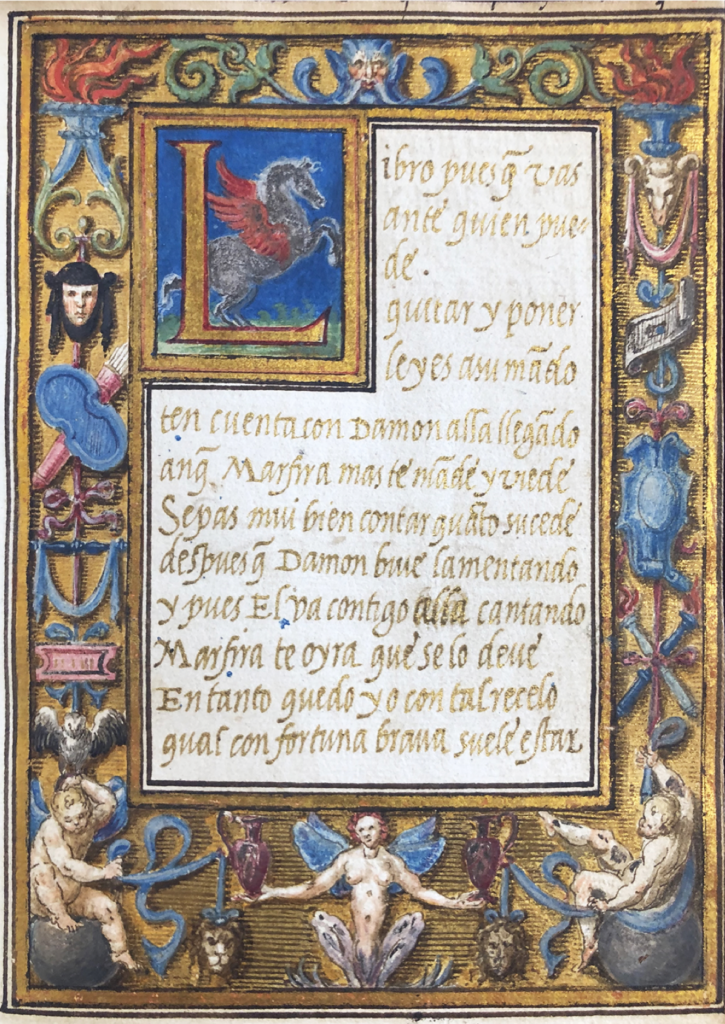 Libro pues q̃ vas
ante quien pue-
de.
quitar y poner
leyes asu mãdo
ten cuenta con Damon alla llegãdo
anq̃ Marfira mas te mãde y viede
Sepas mui bien contar quãto sucede
despues q̃ Damon bive lamentando
y pues El va contigo alla cantando
Marfira te oyra que se lo deve
En tanto quedo yo con tal recelo
qual con fortuna brava suele estar